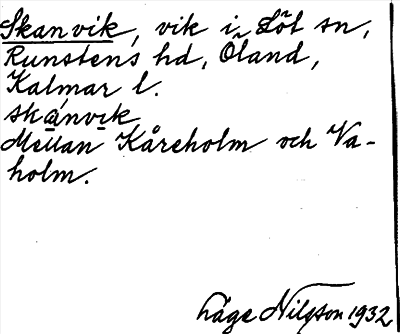 Skanvik, vik i Löt sn,
Runstens hd, Öland,
Kalmar l.
skánvik
Mellan Kåreholm och Va-
holm.
Håge Nilsson 1932